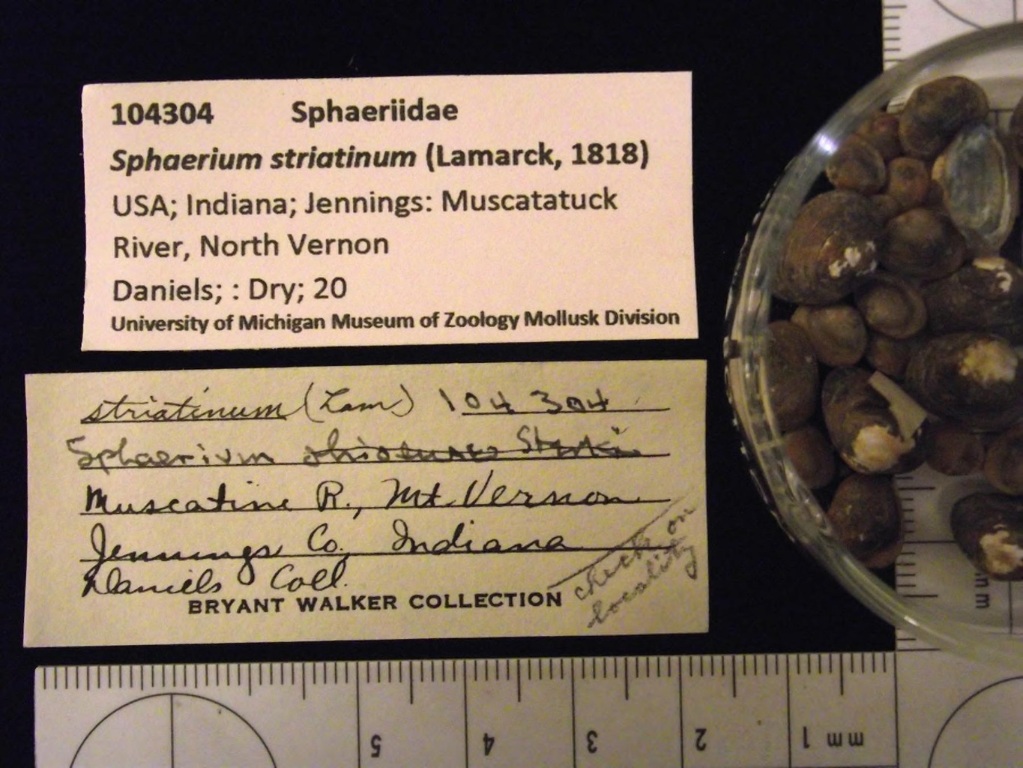 104304 Sphaeriidae
Sphaerium striatinum (Lamarck, 1818)
USA; Indiana; Jennings: Muscatatuck
River, North Vernon
Daniels; : Dry; 20
University of Michigan Museum of Zoology Mollusk Division
striatinum (Lam) 104304
Sphaerium
Muscatine R., Mt. Vernon
Jennings Co., Indiana
Daniels Coll.
check on
locality
BRYANT WALKER COLLECTION
5 4 3 2 1 mm
mm